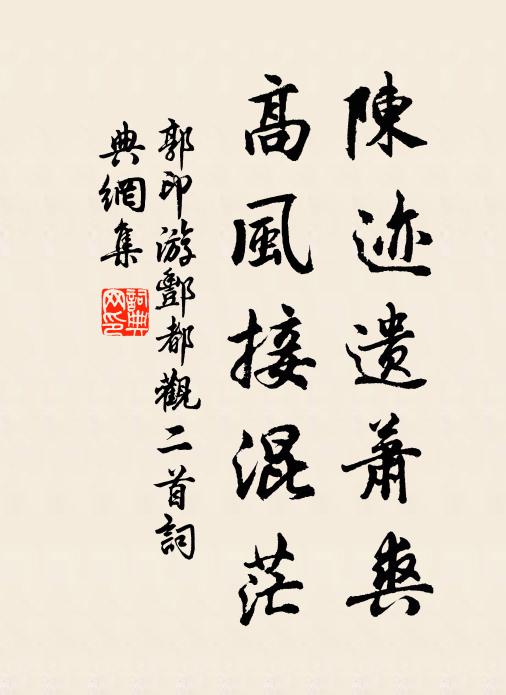 陳迹遺蕭爽
高風接混茫
郭印游酆都觀二首詞
典網集
詞典網印